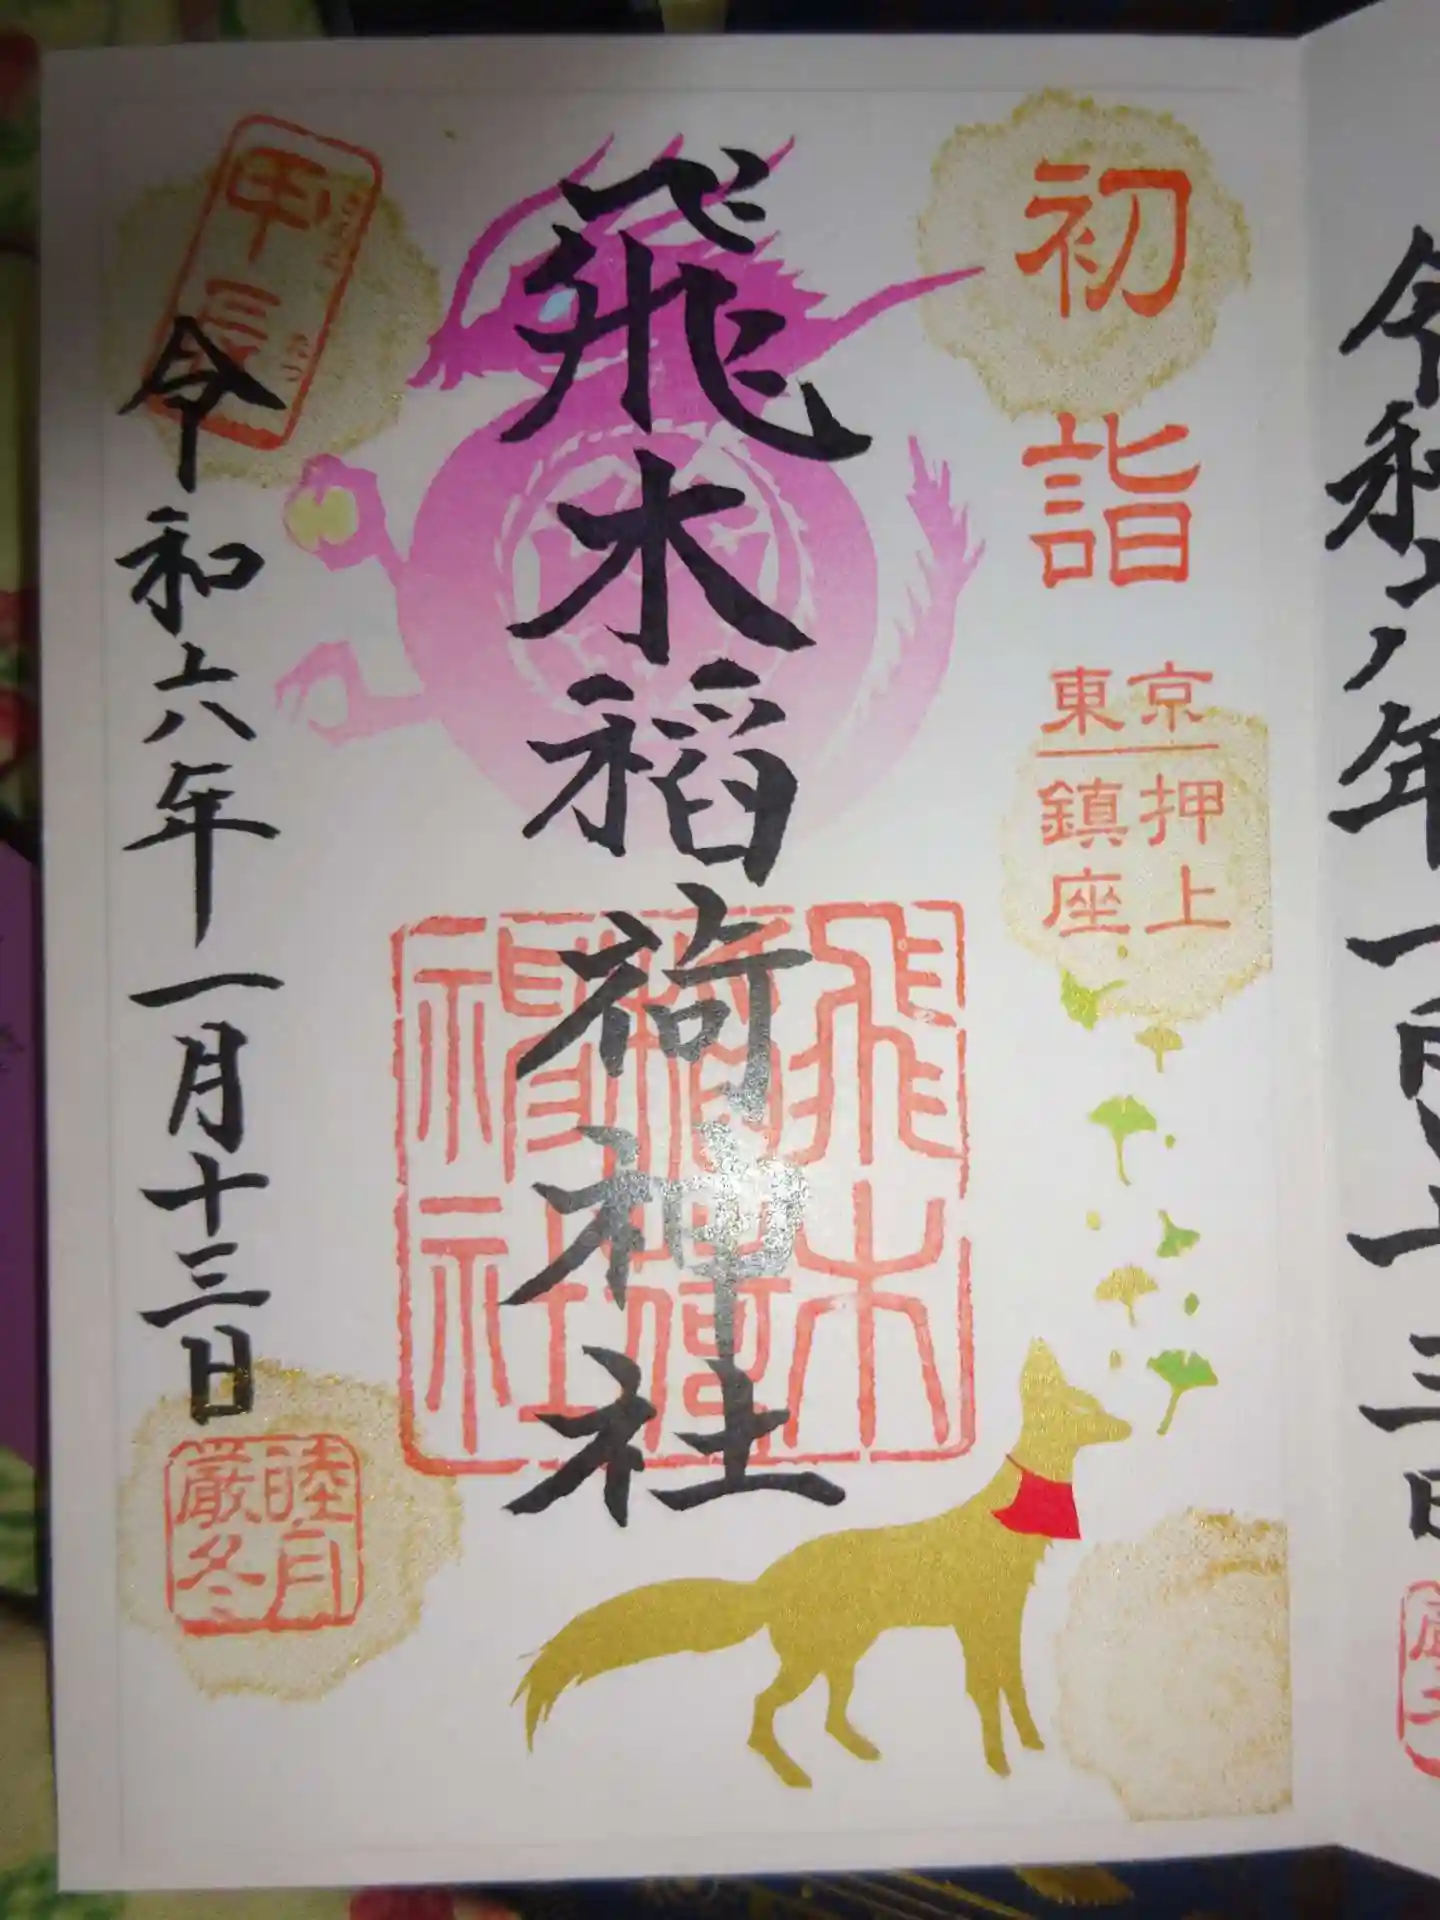 令和六年一月十三日
初詣
東京
押上
鎮座
飛木稲荷神社
飛木
稲荷
神社
甲辰
令和六年一月十三日
睦月
厳冬